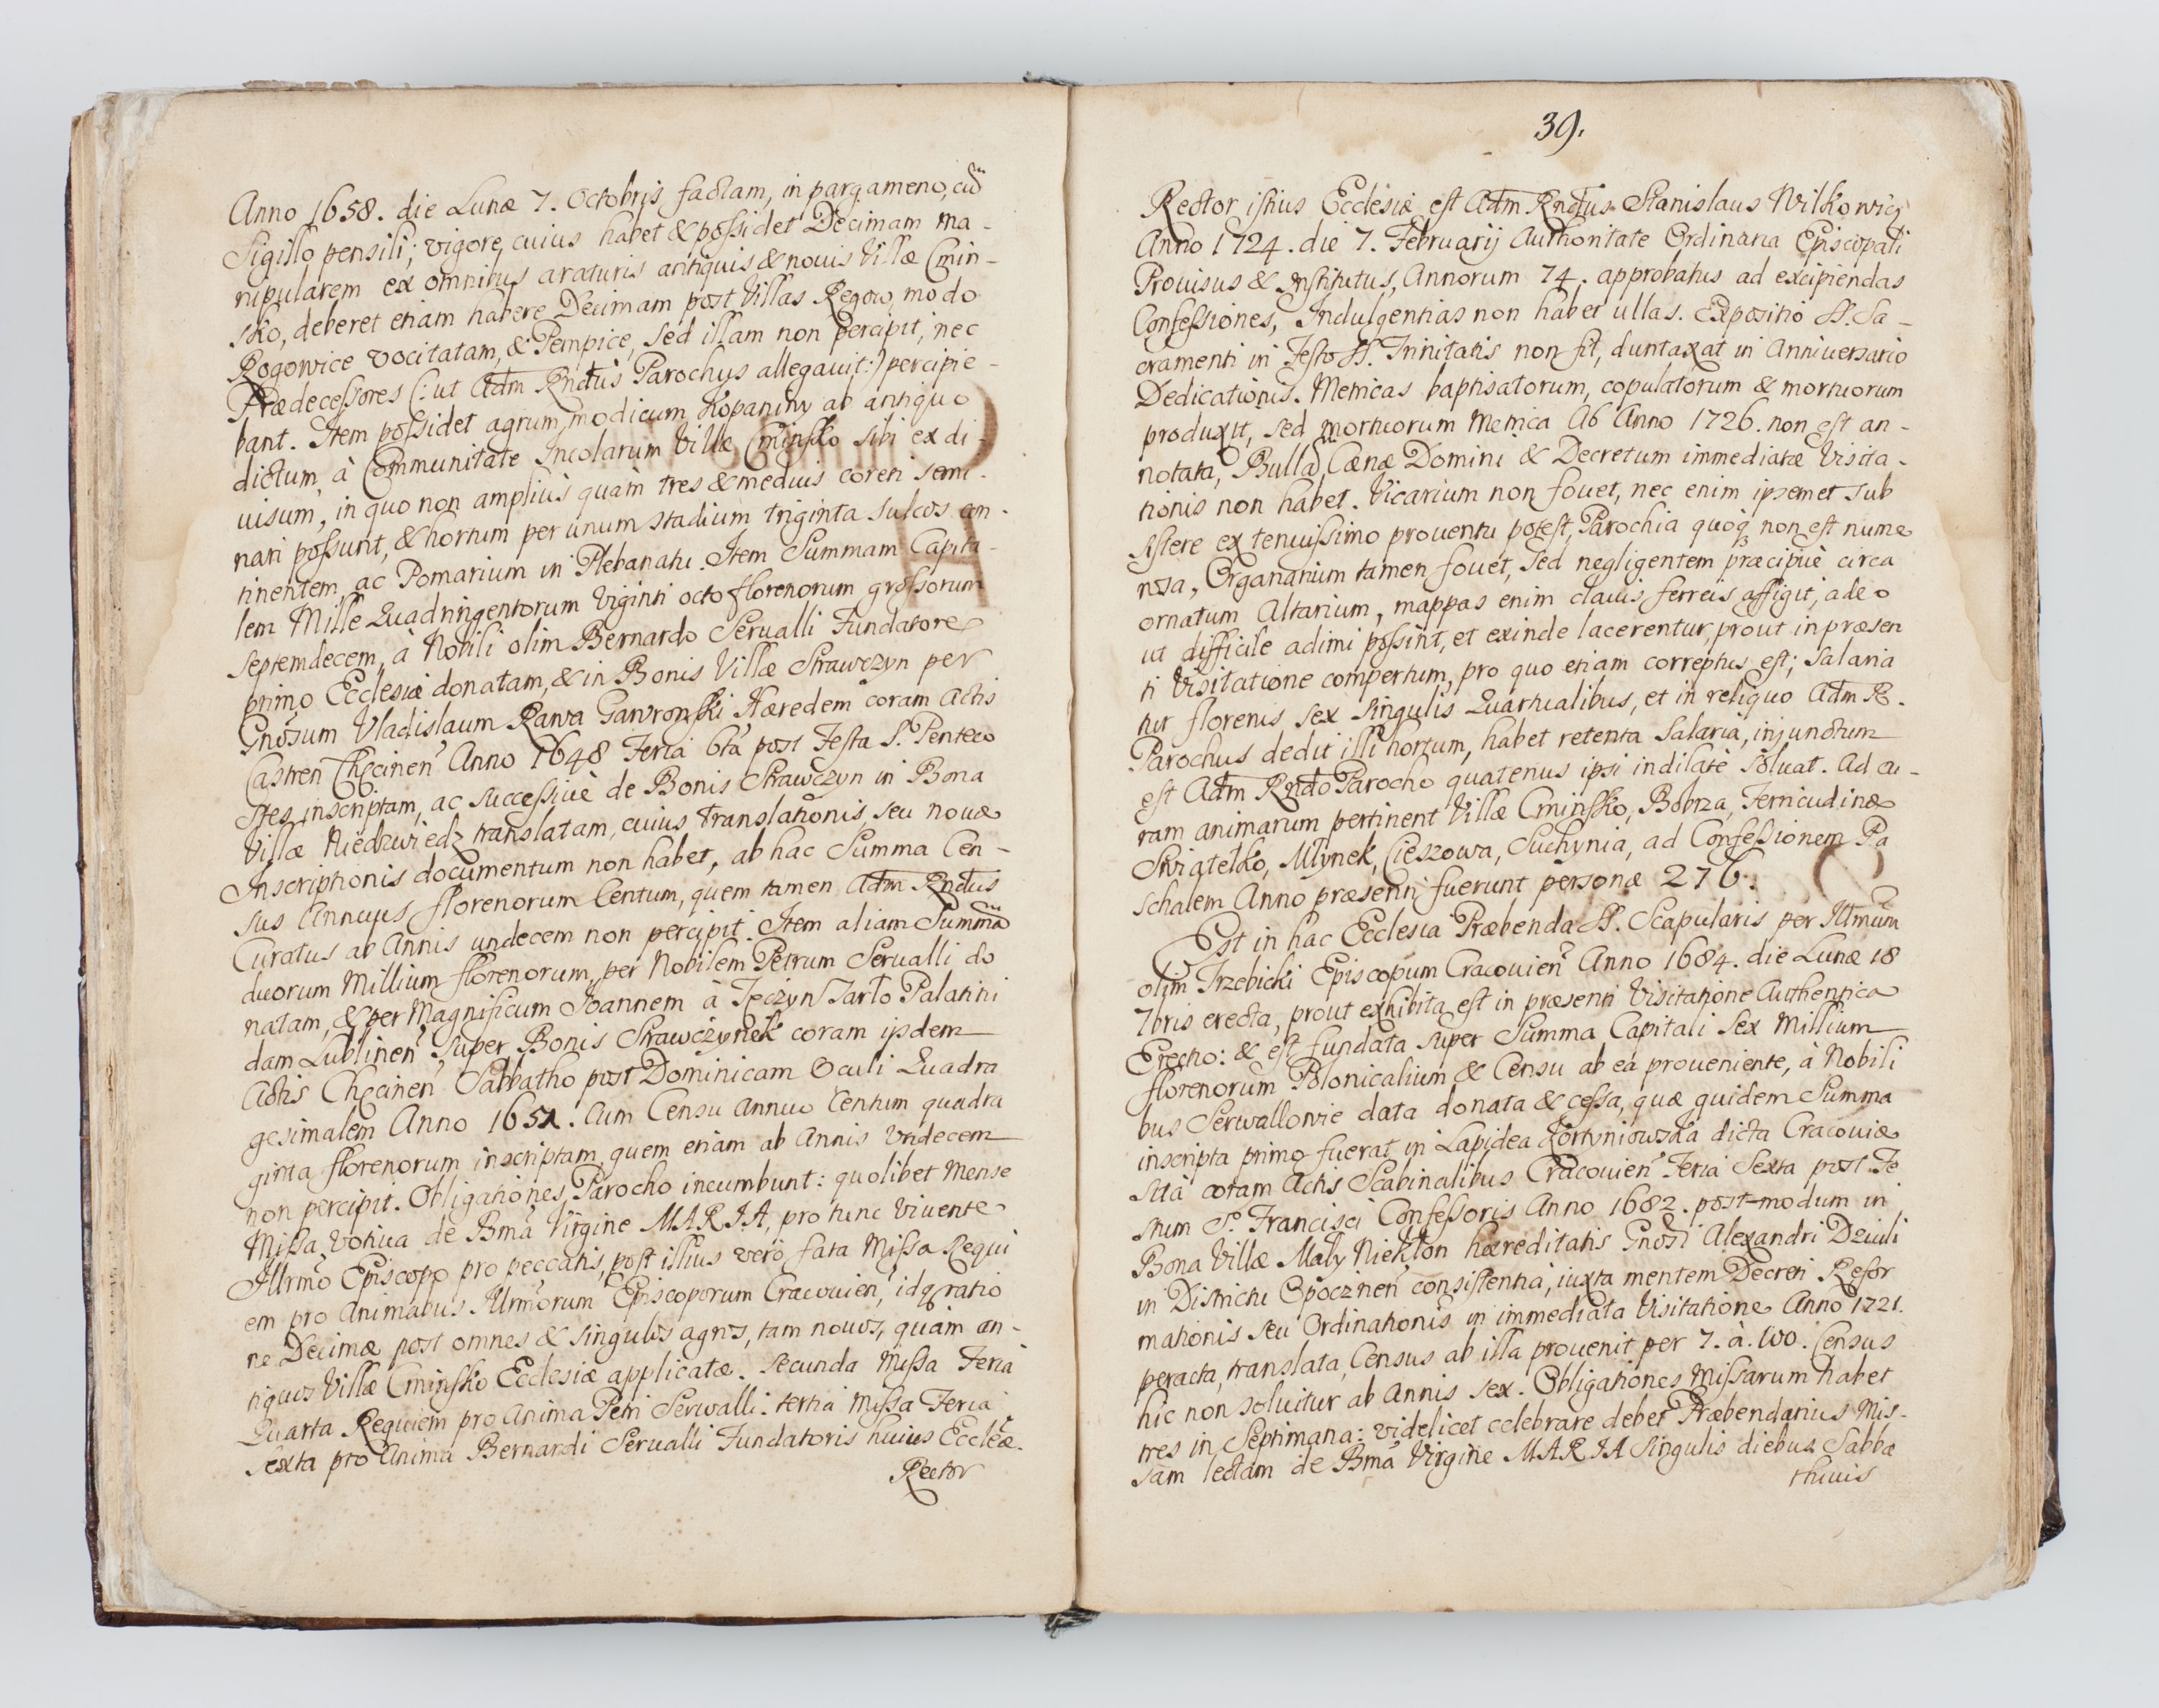 Anno 1658. die Lunæ 7. Octobris factam, in pargameno, cũ
Sigillo pensili; vigore cuius habet & possidet Decimam ma-
nipularem ex omnibus araturis antiquis & nouis Villæ Cmin-
sko, deberet etiam habere Decimam post Villas Regow, modo
Rogowice vocitatam, & Pempice, sed illam non percipit, nec
Prædecessores (: ut Adm Rndus Parochys allegauit:) percipie-
bant. Item possidet agrum modicum Kopaniny ab antiquo
dictum, à Communitate Incolarum Villæ Cminsko sibi ex di-
uisum, in quo non amplius quàm tres & medius coreti semi-
nari possunt, & hortum per unum stadium triginta sulcos con-
tinentem, ac Pomarium in Plebanatu. Item Summam Capita-
lem Mille Quadringentorum Viginti octo florenorum grossorum
septemdecem, à Nobili olim Bernardo Serualli Fundatore
primo Ecclesiæ donatam, & in Bonis Villæ Strawczyn per
Gnosum Vladislaum Rawa Gawronski Hæredem coram Actis
Castren Chęcinen Anno 1648 Feria 6ta post Festa S. Penteco
stes inscriptam, ac successiuè de Bonis Strawczyn in Bona
Villæ Niedzwiedz translatam, cuius Translationis seu nouæ
Inscriptionis documentum non habet, ab hac Summa Cen-
sus Annuus florenorum Centum, quem tamen Adm Rndus
Curatus ab Annis undecem non percipit. Item aliam Summã
duorum Millium florenorum, per Nobilem Petrum Serualli do
natam, & per Magnificum Joannem à Tęczyn Tarło Palatini
dam Lublinen super Bonis Strawczynek coram ijsdem
Actis Chęcinen Sabbatho post Dominicam Oculi Quadra
gesimalem Anno 1651. cum Censu annuo Centum quadra
ginta florenorum inscriptam, quem etiam ab Annis Undecem
non percipit. Obligationes Parocho incumbunt: quolibet Mense
Missa Votiua de Bma Virgine MARIA, pro tunc Viuente
Illrmo Episcopo pro peccatis, post illius verò fata Missa Requi
em pro Animabus Illrmorum Episcoporum Cracouien, idq; ratio
ne Decimæ post omnes & singulos agros, tam nouos, quàm an-
tiquos Villæ Cminsko Ecclesiæ applicatæ. Secunda Missa Feria
Quarta Requiem pro Anima Petri Serwalli. tertia Missa Feria
sexta pro Anima Bernardi Serualli Fundatoris huius Eccleæ.
Rector
39.
Rector istius Ecclesiæ est Adm Rndus Stanislaus Wilkowicz
Anno 1724. die 7. Februarij Authoritate Ordinaria Episcopali
Prouisus & Institutus, Annorum 74. approbatus ad excipiendas
Confessiones, Indulgentias non habet ullas. Expositio SS. Sa-
cramenti in Festo SS. Trinitatis non fit, duntaxat in Anniuersario
Dedicationis. Metricas baptisatorum, copulatorum & mortuorum
produxit, sed mortuorum Metrica ab Anno 1726. non est an-
notata, Bullã Cœnæ Domini & Decretum immediatæ Visita-
tionis non habet. Vicarium non fouet, nec enim ipsemet sub
sistere ex tenuissimo prouentu potest, Parochia quoq; non est nume
rosa, Organarium tamen fouet, sed negligentem præcipuè circa
ornatum Altarium, mappas enim clauis ferreis affigit, adeo
ut difficile adimi possint, et exinde lacerentur, prout in præsen
ti Visitatione compertum, pro quo etiam correptus est; Salaria
tur florenis sex singulis Quartualibus, et in reliquo Adm R.
Parochus dedit illi hortum, habet retenta Salaria, injunctum
est Adm Rndo Parocho quatenus ipsi indilatè soluat. Ad cu-
ram animarum pertinent Villæ Cminsko, Bobrza, Ferricudinæ
Swiątełko, Młynek, Cieszowa, Suchynia, ad Confessionem Pa
schalem Anno præsenti fuerunt personæ 276.
Est in hac Ecclesia Præbenda SS. Scapularis per Illmum
olim Trzebicki Episcopum Cracouien Anno 1684. die Lunæ 18
7bris erecta, prout exhibita est in præsenti Visitatione Authentica
Erectio: & est fundata super Summa Capitali Sex Millium
florenorum Polonicalium & Censu ab ea proueniente, à Nobili
bus Serwallowie data donata & cessa, quæ quidem Summa
inscripta primo fuerat in Lapidea Fortyniowska dicta Cracouiæ
sita coram Actis Scabinalibus Cracouien Feria Sexta post Fe
stum S. Francisci Confessoris Anno 1682. post modum in
Bona Villæ Mały Niekłon hæreditatis Gnosi Alexandri Dziuli
in Districtu Opocznen consistentia, iuxta mentem Decreti Refor
mationis seu Ordinationis in immediata Visitatione Anno 1721.
peracta, translata, Census ab illa prouenit per 7. à. 100. Census
hic non soluitur ab Annis sex. Obligationes Missarum habet
tres in Septimana: videlicet celebrare debet Præbendarius Mis-
sam lectam de Bma Virgine MARIA singulis diebus Sabba
thiuis